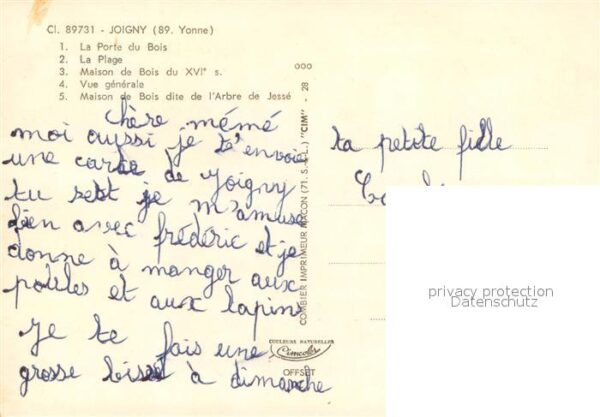 Cl. 89731 - JOIGNY (89. Yonne)
1. La Porte du Bois
2. La Plage
3. Maison de Bois du XVIe s.
4. Vue générale
5. Maison de Bois dite de l'Arbre de Jessé
chère mémé
moi aussi je t'envoie
une carte de Joigny
tu je m'amuse
bien avec frédéric et je
donne à manger aux
poules et aux lapins
je te fais une
grosse bise à dimanche
ta petite fille
COMBIER IMPRIMEUR MACON (71. S.-&-L.) "CIM" - 28
COULEURS NATURELLES
Cimcolor
OFFSET
privacy protection
Datenschutz